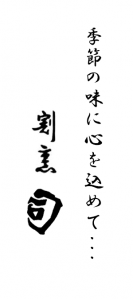 季節の味に心を込めて・・・
割烹
司